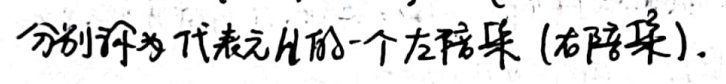 分别称为代表元H的一个左陪集(右陪集).